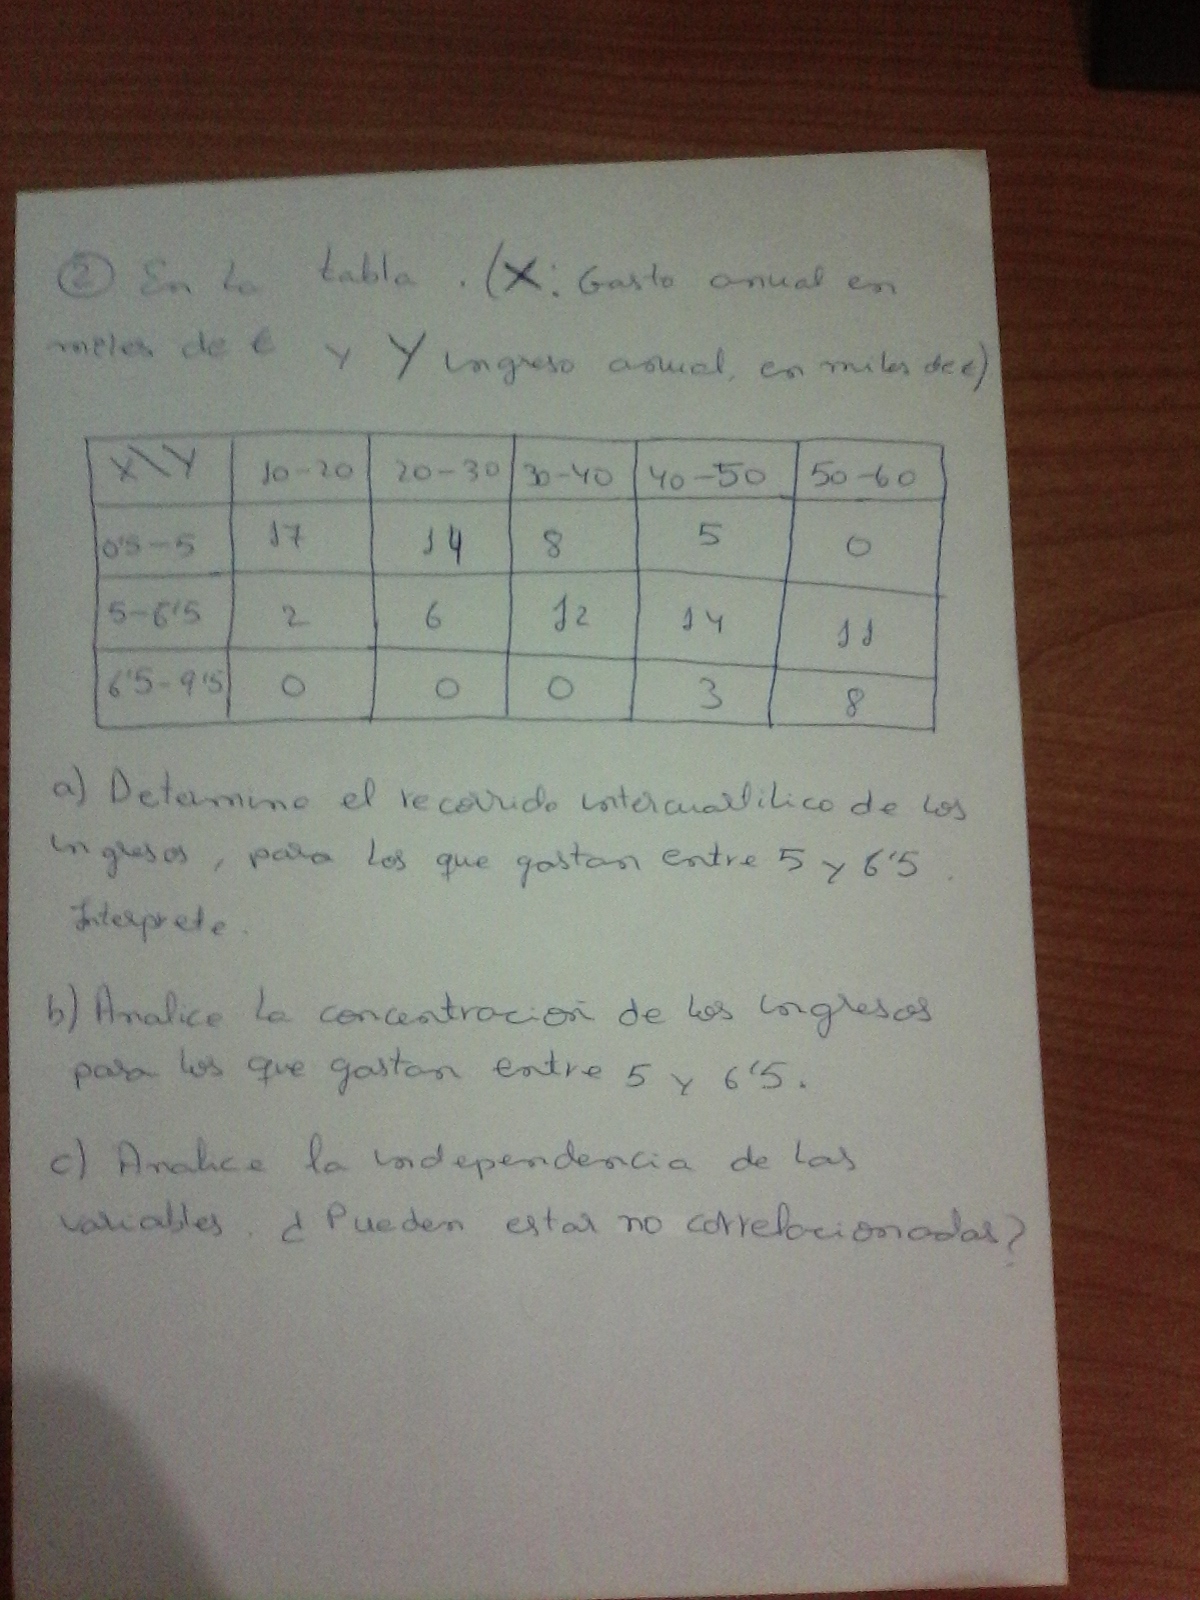 ② En la tabla . (X: Gasto anual en
miles de € y Y ingreso anual, en miles de €)
X\Y 10-20 20-30 30-40 40-50 50-60
0'5-5 17 14 8 5 0
5-6'5 2 6 12 14 11
6'5-9'5 0 0 0 3 8
a) Determine el recorrido intercuartilico de los
ingresos, para los que gastan entre 5 y 6'5.
Interprete.
b) Analice la concentración de los ingresos
para los que gastan entre 5 y 6'5.
c) Analice la independencia de las
variables. ¿Pueden estar no correlacionadas?